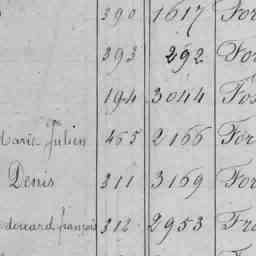 390 1617 For
393 292 Fo
194 3044 Fos
Marie Julien 465 2166 For
Denis 311 3169 For
Edouard françois 312 2953 Fra